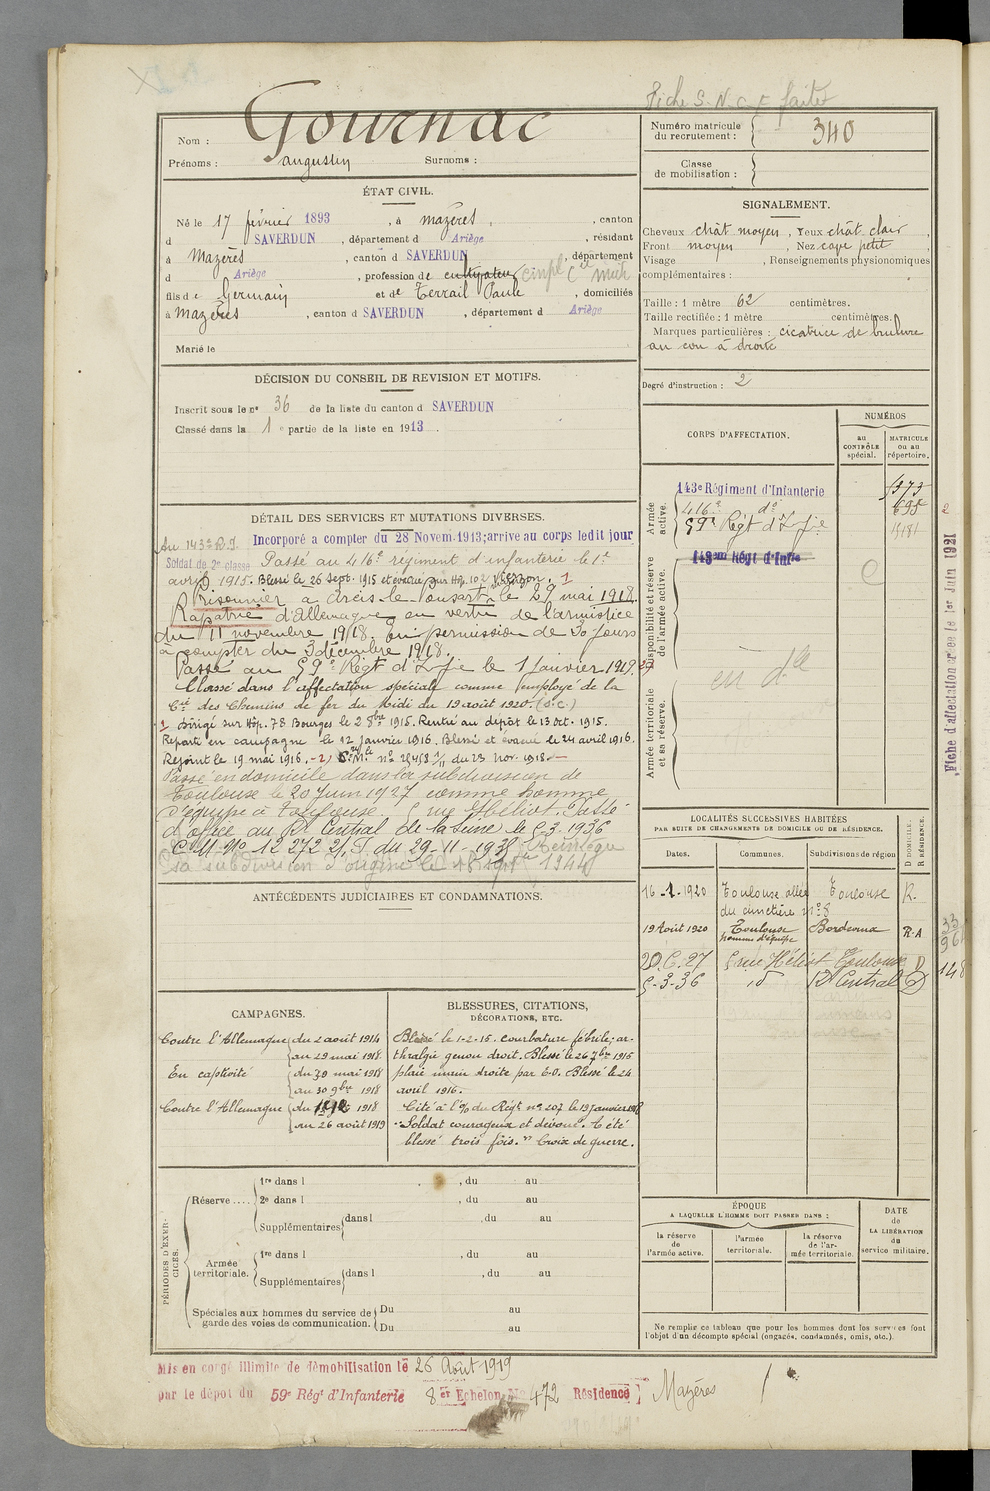 Fiche S.N.C.F. faite
Nom : Gournac
Prénoms : augustin Surnoms :
Numéro matricule du recrutement : 340
Classe de mobilisation :
ÉTAT CIVIL.
Né le 17 février 1893, à Mazères, canton
d SAVERDUN, département d Ariège, résidant
à Mazères, canton d SAVERDUN, département
d Ariège, profession de cultivateur
fils de Germain et de Terrail Paule, domiciliés
à Mazères, canton d SAVERDUN, département d Ariège
Marié le
SIGNALEMENT.
Cheveux chât moyen, Yeux chât. clair,
Front moyen, Nez cave petit
Visage , Renseignements physionomiques
complémentaires :
Taille : 1 mètre 62 centimètres.
Taille rectifiée : 1 mètre centimètres.
Marques particulières : cicatrice de brulure
au cou à droite
Degré d'instruction : 2
DÉCISION DU CONSEIL DE REVISION ET MOTIFS.
Inscrit sous le n° 36 de la liste du canton d SAVERDUN
Classé dans la 1e partie de la liste en 1913.
CORPS D'AFFECTATION.
NUMÉROS
au CONTRÔLE spécial.
MATRICULE ou au répertoire.
Armée active.
143e Régiment d'Infanterie
416e d°
59e Régt d'Infie
Disponibilité et réserve de l'armée active.
143eme Régt d'Infie
Armée territoriale et sa réserve.
Fiche d'affectation créée le 1er Juin 1921
DÉTAIL DES SERVICES ET MUTATIONS DIVERSES.
Au 143e R.I. Incorporé a compter du 28 Novem. 1913; arrive au corps ledit jour
Soldat de 2e classe Passé au 416e régiment d'infanterie le 1er
avril 1915. Blessé le 26 sept. 1915 et évacué sur Hôp. 102 1
Prisonnier a Arcis-le-Ponsart, le 29 mai 1918.
Rapatrié d'Allemagne en vertu de l'armistice
du 11 novembre 1918. En permission de 30 jours
à compter du 3 décembre 1918.
Passé au 59e Régt d'Infie le 1 Janvier 1919.
Classé dans l'affectation spéciale comme employé de la
Cie des Chemins de fer du Midi du 19 août 1920. (S.C.)
1 Dirigé sur Hôp. 78 Bourges le 2 8bre 1915. Rentré au dépôt le 13 oct. 1915.
Reparti en campagne le 12 janvier 1916. Blessé et évacué le 24 avril 1916.
Rejoint le 19 mai 1916. -2) du 23 nov. 1918.
Passé en domicile dans la subdivision de
Toulouse le 20 Juin 1927 comme homme
d'équipe à Toulouse. 5 rue Héliot. Passé
d'office au Rt Central de la Seine le 5-3-1936
C.M. N° 12 272 2/S. du 29-11-1935
sa subdivision d'origine le 1944
ANTÉCÉDENTS JUDICIAIRES ET CONDAMNATIONS.
LOCALITÉS SUCCESSIVES HABITÉES
PAR SUITE DE CHANGEMENTS DE DOMICILE OU DE RÉSIDENCE.
Dates. Communes. Subdivisions de région D DOMICILE. R RÉSIDENCE.
16-1-1920 Toulouse allée du cimetière n° 8 Toulouse R.
19 Août 1920 Toulouse homme d'équipe Bordeaux R.A
20.6.27 5 rue Héliot Toulouse D
5-3-36 id Rt Central D
CAMPAGNES.
Contre l'Allemagne du 2 août 1914
au 29 mai 1918
En captivité du 30 mai 1918
au 30 9bre 1918
Contre l'Allemagne du 1918
au 26 août 1919
BLESSURES, CITATIONS,
DÉCORATIONS, ETC.
Blessé le 1-2-15. courbature fébrile; ar-
thralgie genou droit. Blessé le 26 7bre 1915
plaie main droite par E.O. Blessé le 24
avril 1916.
Cité à l'O/ du Régt n° 207, le 19 janvier 1918
"Soldat courageux et dévoué. A été
blessé trois fois." Croix de guerre.
PÉRIODES D'EXERCICES.
Réserve .... 1re dans l , du au
2e dans l , du au
Supplémentaires dans l , du au
Armée territoriale. 1re dans l , du au
Supplémentaires dans l , du au
Spéciales aux hommes du service de garde des voies de communication. Du au
Du au
ÉPOQUE
A LAQUELLE L'HOMME DOIT PASSER DANS :
la réserve de l'armée active.
l'armée territoriale.
la réserve de l'armée territoriale.
DATE de LA LIBÉRATION du service militaire.
Ne remplir ce tableau que pour les hommes dont les services font
l'objet d'un décompte spécial (engagés, condamnés, omis, etc.).
Mis en congé illimité de démobilisation le 26 Août 1919
par le dépôt du 59e Régt d'Infanterie 8er Echelon N° 472 Résidence Mazères